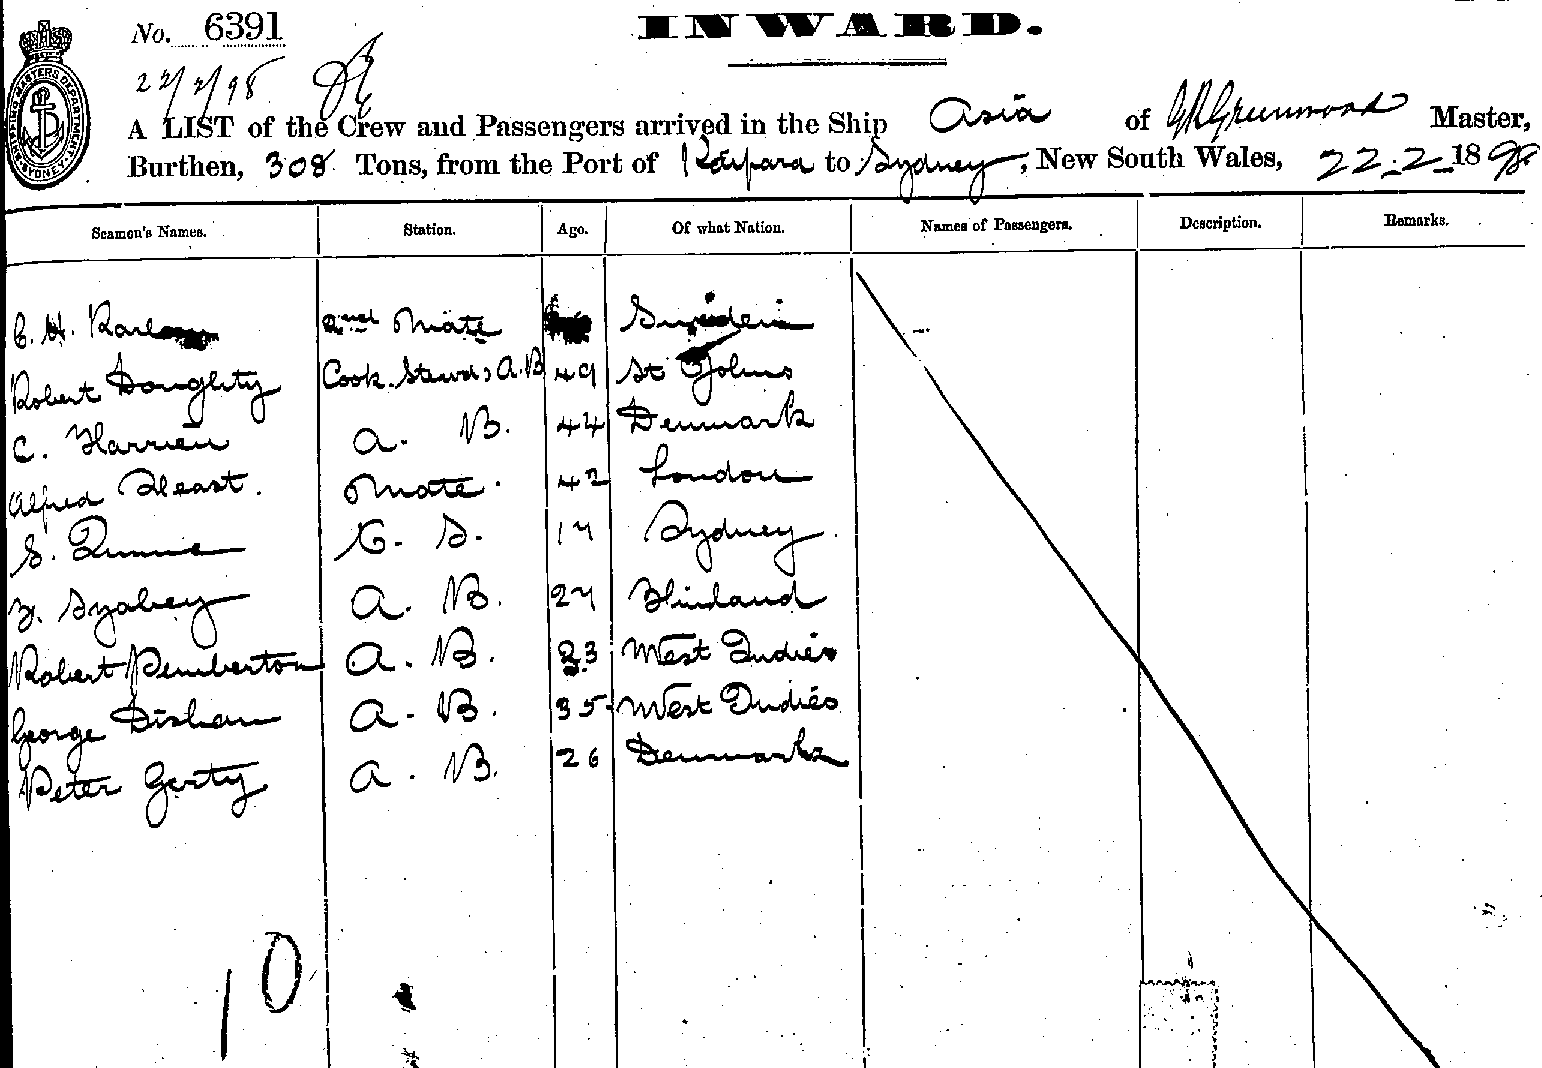 No. 6391
INWARD.
22/2/98
A LIST of the Crew and Passengers arrived in the Ship Asia of G R Greenwood Master,
Burthen, 308 Tons, from the Port of Kaipara to Sydney, New South Wales, 22.2.1898
SHIPPING MASTERS DEPARTMENT SYDNEY
Seamen's Names. Station. Age. Of what Nation. Names of Passengers. Description. Remarks.
C. H. 2nd Mate Sweden
Robert Doughty Cook. Stewd & A.B 49 St Johns
C. Harrien A. B. 44 Denmark
Alfred Heast. Mate. 42 London
S. O. S. 17 Sydney.
A. B. 27 Flinland
Robert Pemberton A. B. 23 West Indies
George Disham A. B. 35 West Indies
Peter Gerty A. B. 26 Denmark
10